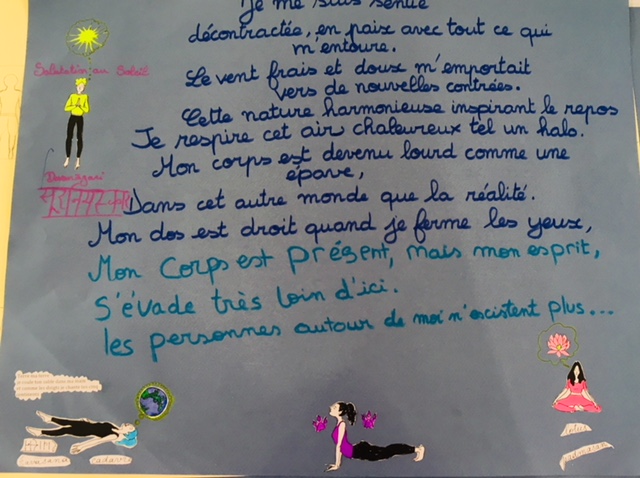 Je me suis sentie
décontractée, en paix avec tout ce qui
m'entoure.
Salutation au Soleil
Le vent frais et doux m'emportait
vers de nouvelles contrées.
Cette nature harmonieuse inspirant le repos
Je respire cet air chaleureux tel un halo.
Mon corps est devenu lourd comme une
épave,
Dans cet autre monde que la réalité.
Mon dos est droit quand je ferme les yeux,
Mon corps est présent, mais mon esprit,
S'évade très loin d'ici.
les personnes autour de moi n'existent plus...